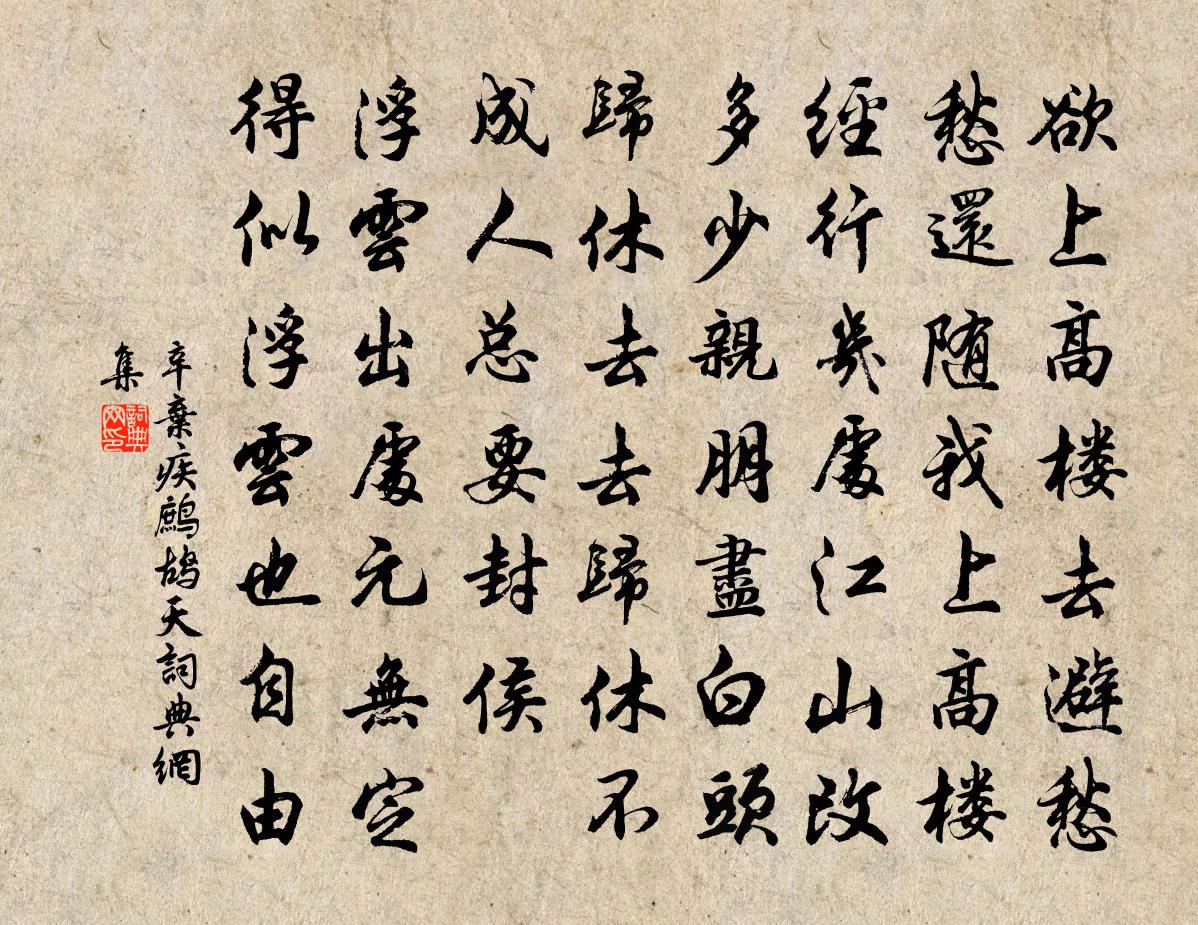 欲上高楼去避愁
愁還随我上高楼
經行幾處江山改
多少親朋盡白頭
歸休去去歸休不
成人总要封侯
浮雲出處元無定
得似浮雲也自由
辛棄疾鷓鴣天詞典網
集
詞典
网印